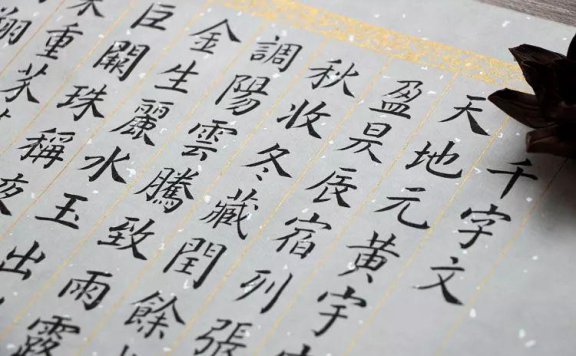 千字文
天地元黄宇
盈昃辰宿列張
秋收冬藏閏餘
調陽雲騰致雨露
金生麗水玉出
巨闕珠稱夜
菜重芥
翔